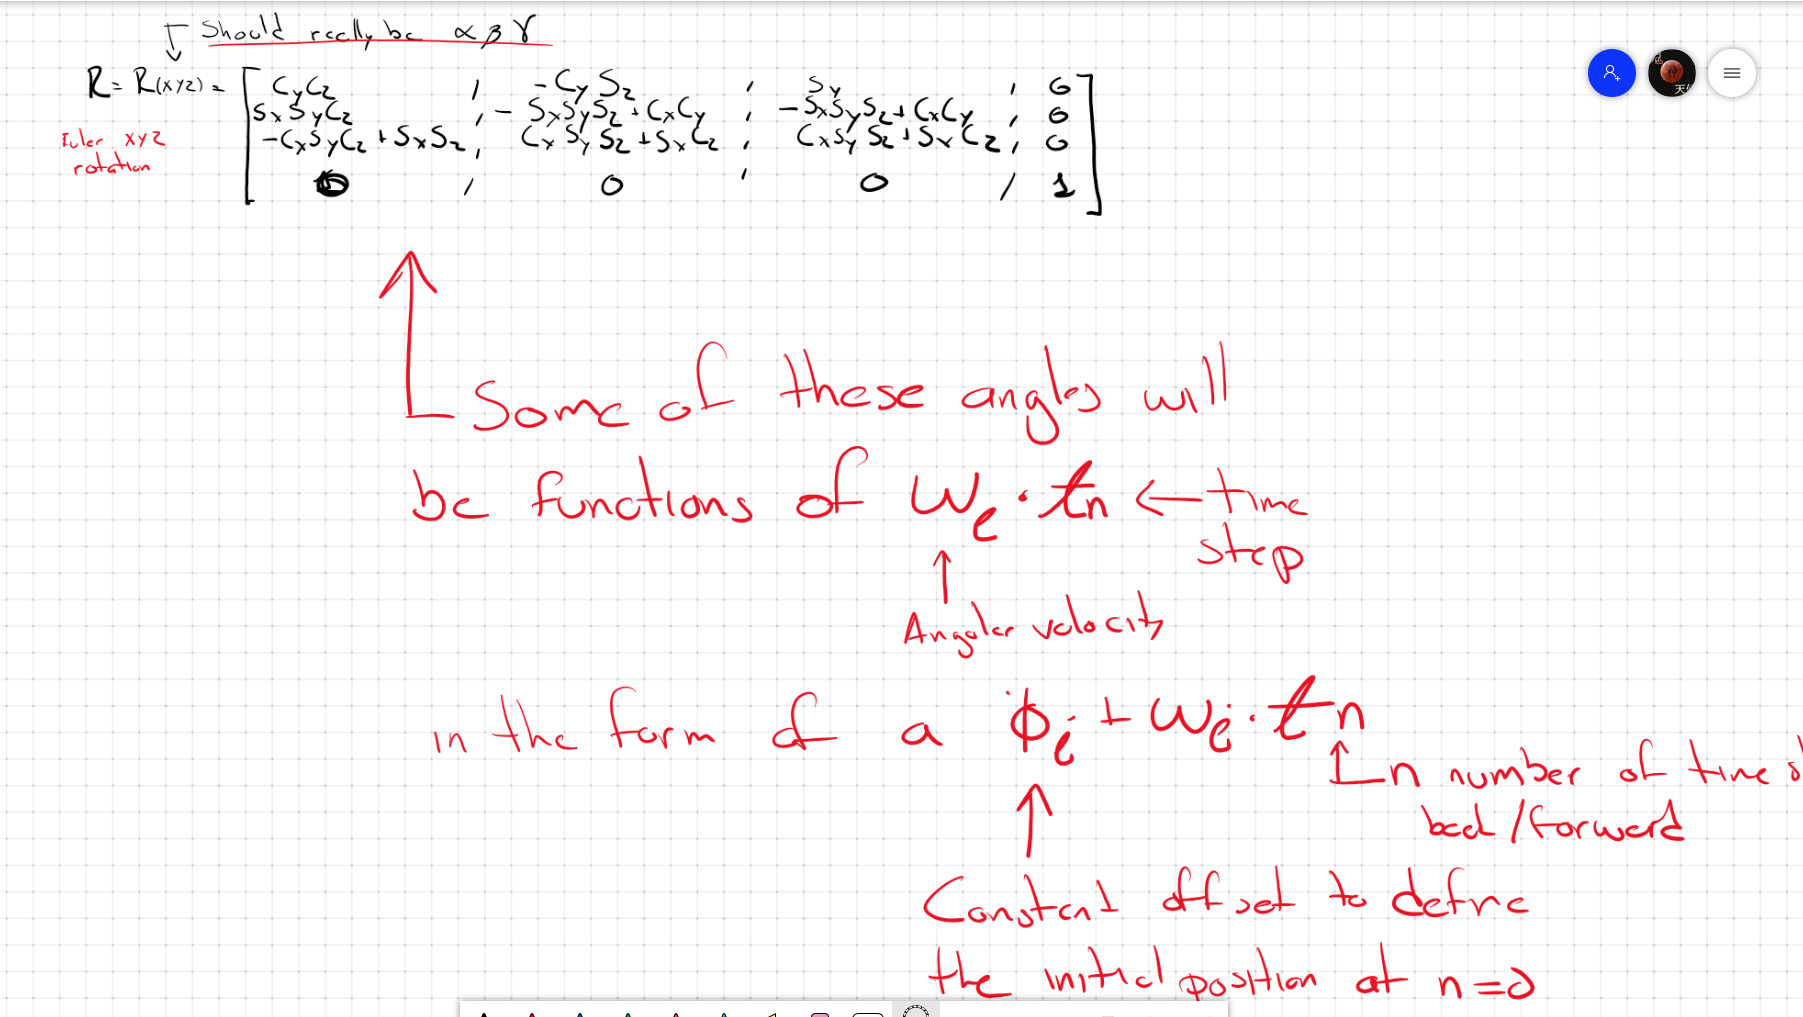 Should really be α β γ
R = R(xyz) =
CyCz , -CySz , Sy , 0
SxSyCz , -SxSySz + CxCy , -SxSySz + CxCy , 0
-CxSyCz + SxSz , CxSySz + SxCz , CxSySz + SxCz , 0
0 , 0 , 0 , 1
Euler xyz
rotation
Some of these angles will
be functions of ωe · tn ← time
step
Angular velocity
in the form of a ϕi + ωi · tn
n number of time
/forward
Constant offset to define
the initial position at n=0
天